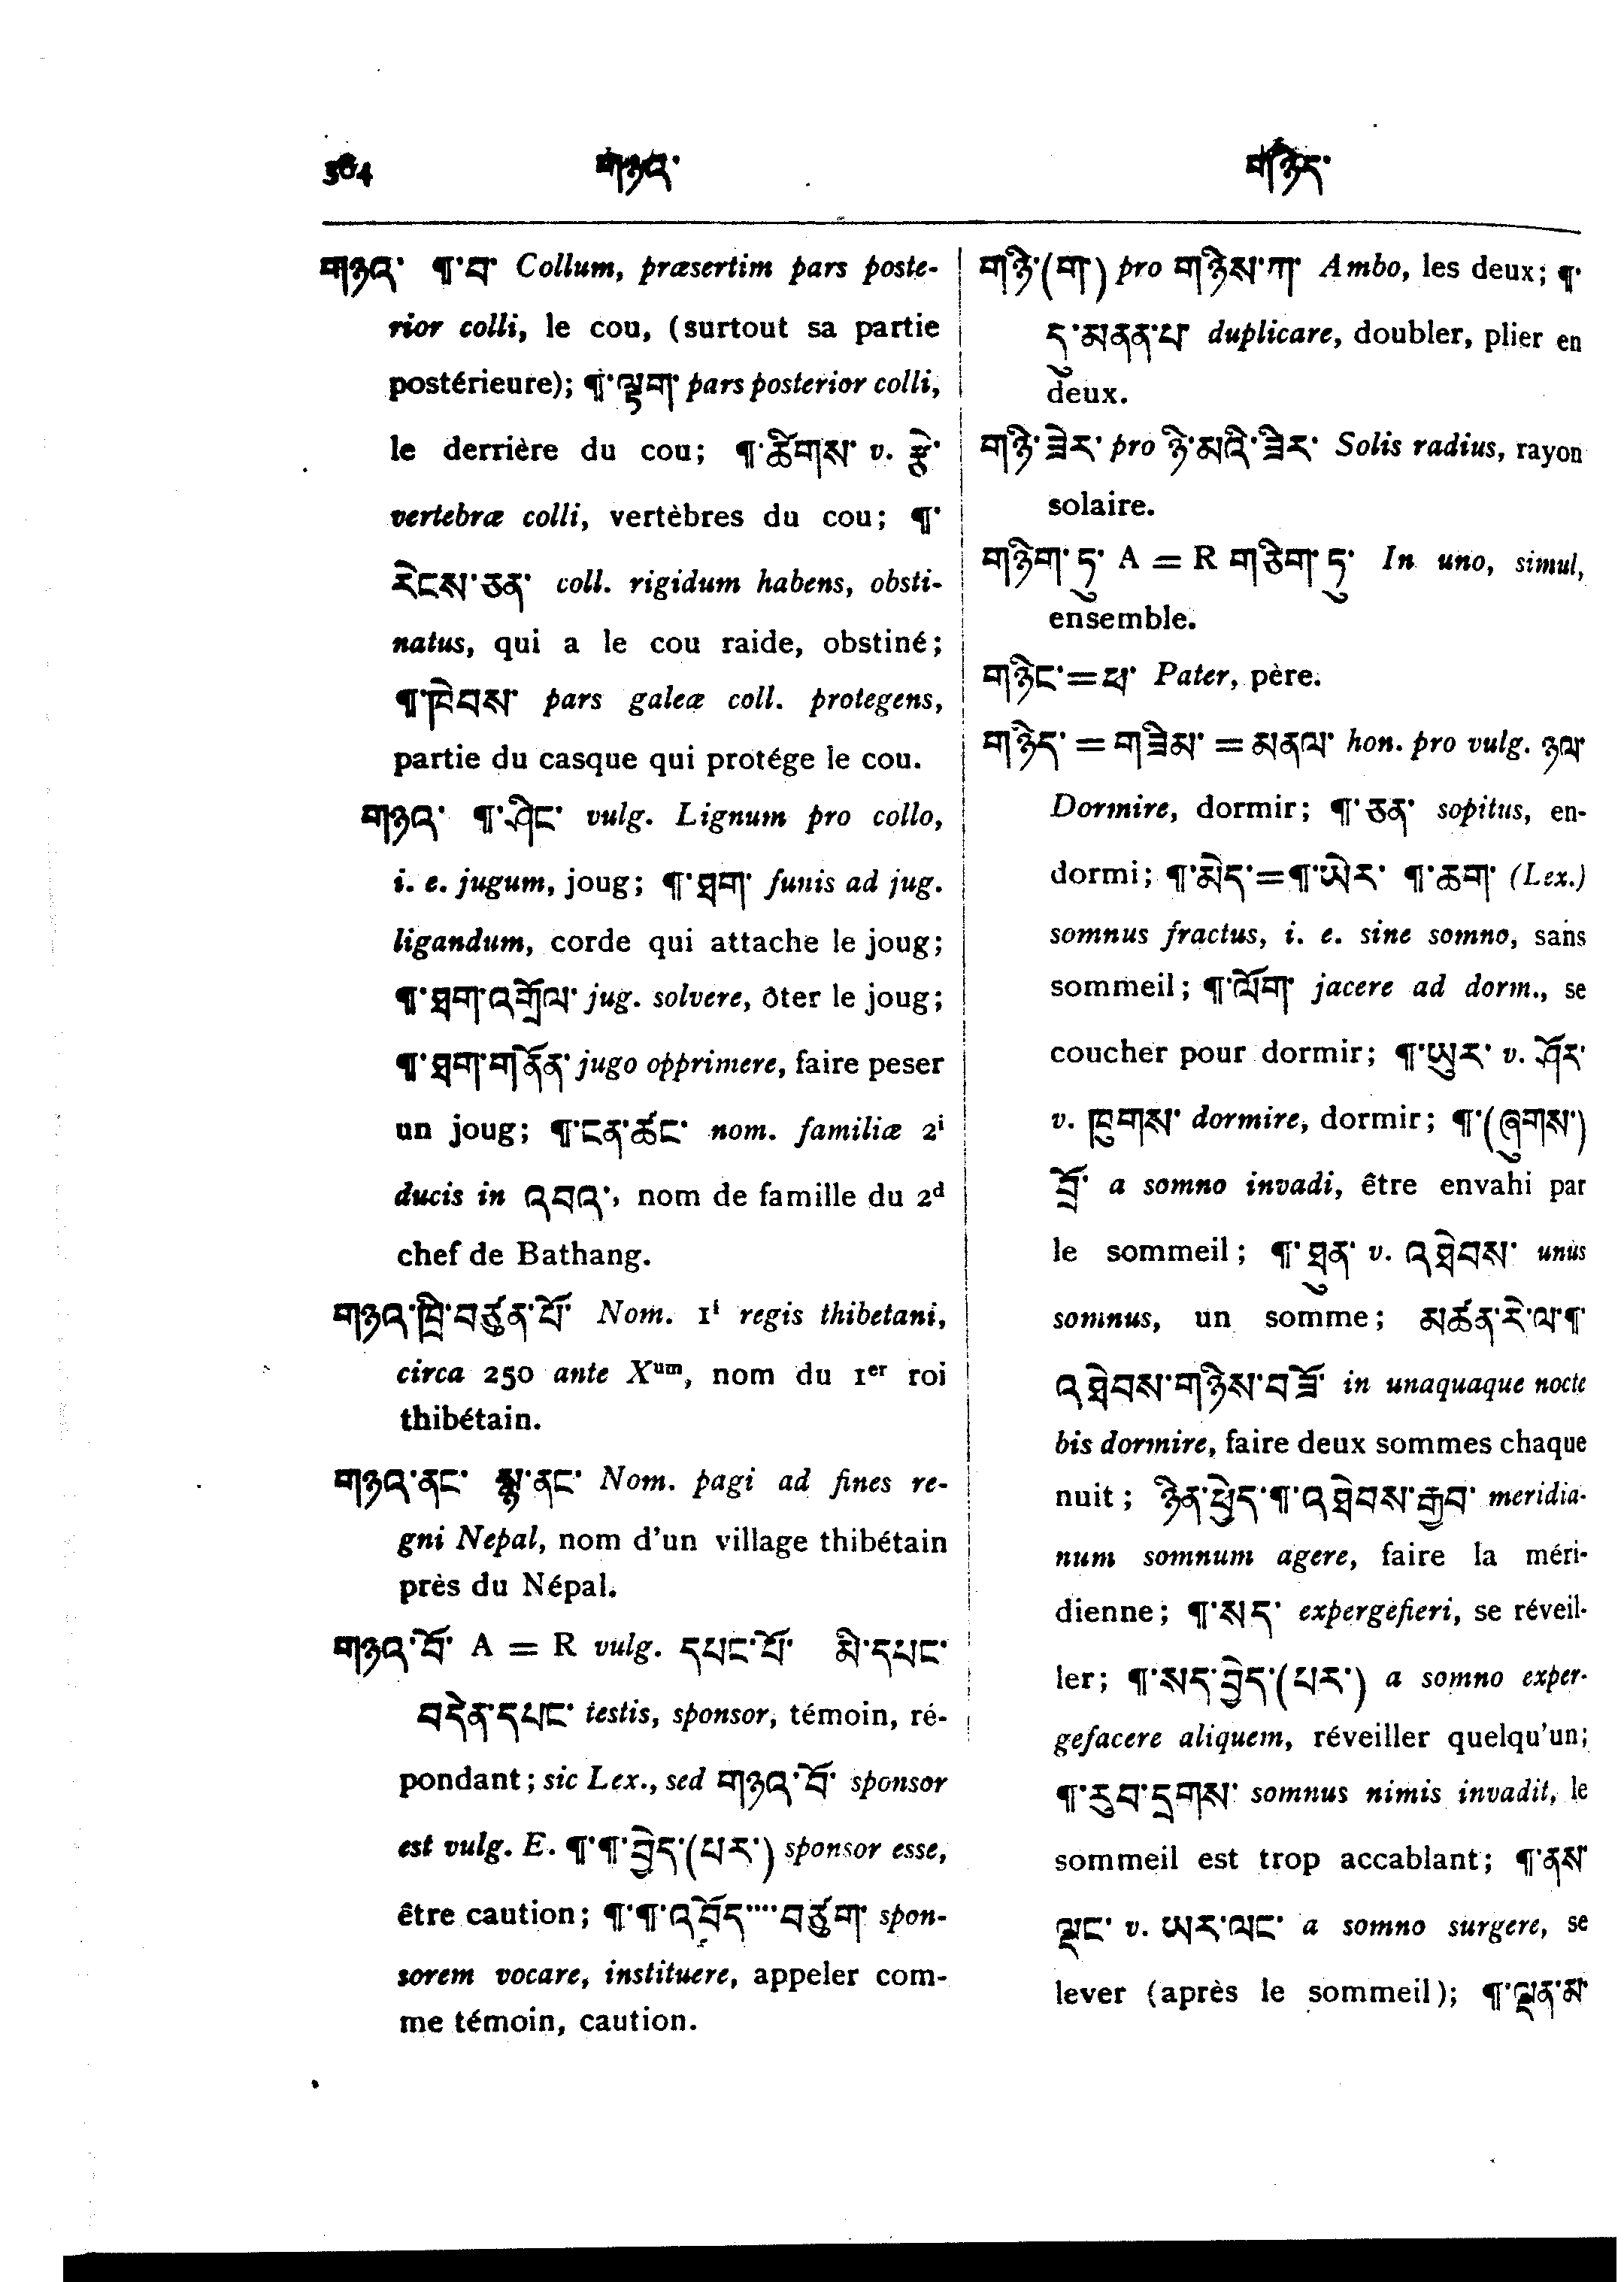 364 གཉའ་ གཉིད་
གཉའ་ ¶་བ་ Collum, præsertim pars poste-
rior colli, le cou, (surtout sa partie
postérieure); ¶་ལྟག་ pars posterior colli,
le derrière du cou; ¶་ཚིགས་ v.
vertebræ colli, vertèbres du cou; ¶་
རེངས་ཅན་ coll. rigidum habens, obsti-
natus, qui a le cou raide, obstiné;
¶་ཁེབས་ pars galeæ coll. protegens,
partie du casque qui protége le cou.
གཉའ་ ¶་ཤིང་ vulg. Lignum pro collo,
i. e. jugum, joug; ¶་ཐག་ funis ad jug.
ligandum, corde qui attache le joug;
¶་ཐག་འགྲོལ་ jug. solvere, ôter le joug;
¶་ཐག་གནོན་ jugo opprimere, faire peser
un joug; ¶་ངན་ཚང་ nom. familiæ 2i
ducis in འབའ་, nom de famille du 2d
chef de Bathang.
གཉའ་ཁྲི་བཙུན་པོ་ Nom. 1i regis thibetani,
circa 250 ante Xum, nom du 1er roi
thibétain.
གཉའ་ནང་ སྙ་ནང་ Nom. pagi ad fines re-
gni Nepal, nom d'un village thibétain
près du Népal.
གཉའ་བོ་ A = R vulg. དཔང་པོ་ མི་དཔང་
བདེན་དཔང་ testis, sponsor, témoin, ré-
pondant; sic Lex., sed གཉའ་བོ་ sponsor
est vulg. E. ¶་¶་བྱེད་(པར་) sponsor esse,
être caution; ¶་¶་འབོད་་་་བཙུག་ spon-
sorem vocare, instituere, appeler com-
me témoin, caution.
གཉི་(ག་) pro གཉིས་ཀ་ Ambo, les deux; ¶་
དུ་མནན་པ་ duplicare, doubler, plier en
deux.
གཉི་ཟེར་ pro ཉི་མའི་ཟེར་ Solis radius, rayon
solaire.
གཉིག་ཏུ་ A = R གཅིག་ཏུ་ In uno, simul,
ensemble.
གཉིང་=ཕ་ Pater, père.
གཉིད་ = གཟིམ་ = མནལ་ hon. pro vulg. ཉལ་
Dormire, dormir; ¶་ཅན་ sopitus, en-
dormi; ¶་མེད་=¶་ཡེར་ ¶་ཆག་ (Lex.)
somnus fractus, i. e. sine somno, sans
sommeil; ¶་ལོག་ jacere ad dorm., se
coucher pour dormir; ¶་ཡུར་ v. ཤོར་
v. ཁུགས་ dormire, dormir; ¶་(ཞུགས་)
བྲོ་ a somno invadi, être envahi par
le sommeil; ¶་ཐུན་ v. འཐེབས་ unus
somnus, un somme; མཚན་རེ་ལ་¶་
འཐེབས་གཉིས་བཟོ་ in unaquaque nocte
bis dormire, faire deux sommes chaque
nuit; ཉིན་ཕྱེད་¶་འཐེབས་རྒྱབ་ meridia-
num somnum agere, faire la méri-
dienne; ¶་སད་ expergefieri, se réveil-
ler; ¶་སད་བྱེད་(པར་) a somno exper-
gefacere aliquem, réveiller quelqu'un;
¶་རུབ་དྲགས་ somnus nimis invadit, le
sommeil est trop accablant; ¶་ནས་
ལྡང་ v. ཡར་ལང་ a somno surgere, se
lever (après le sommeil); ¶་ལྡན་མ་